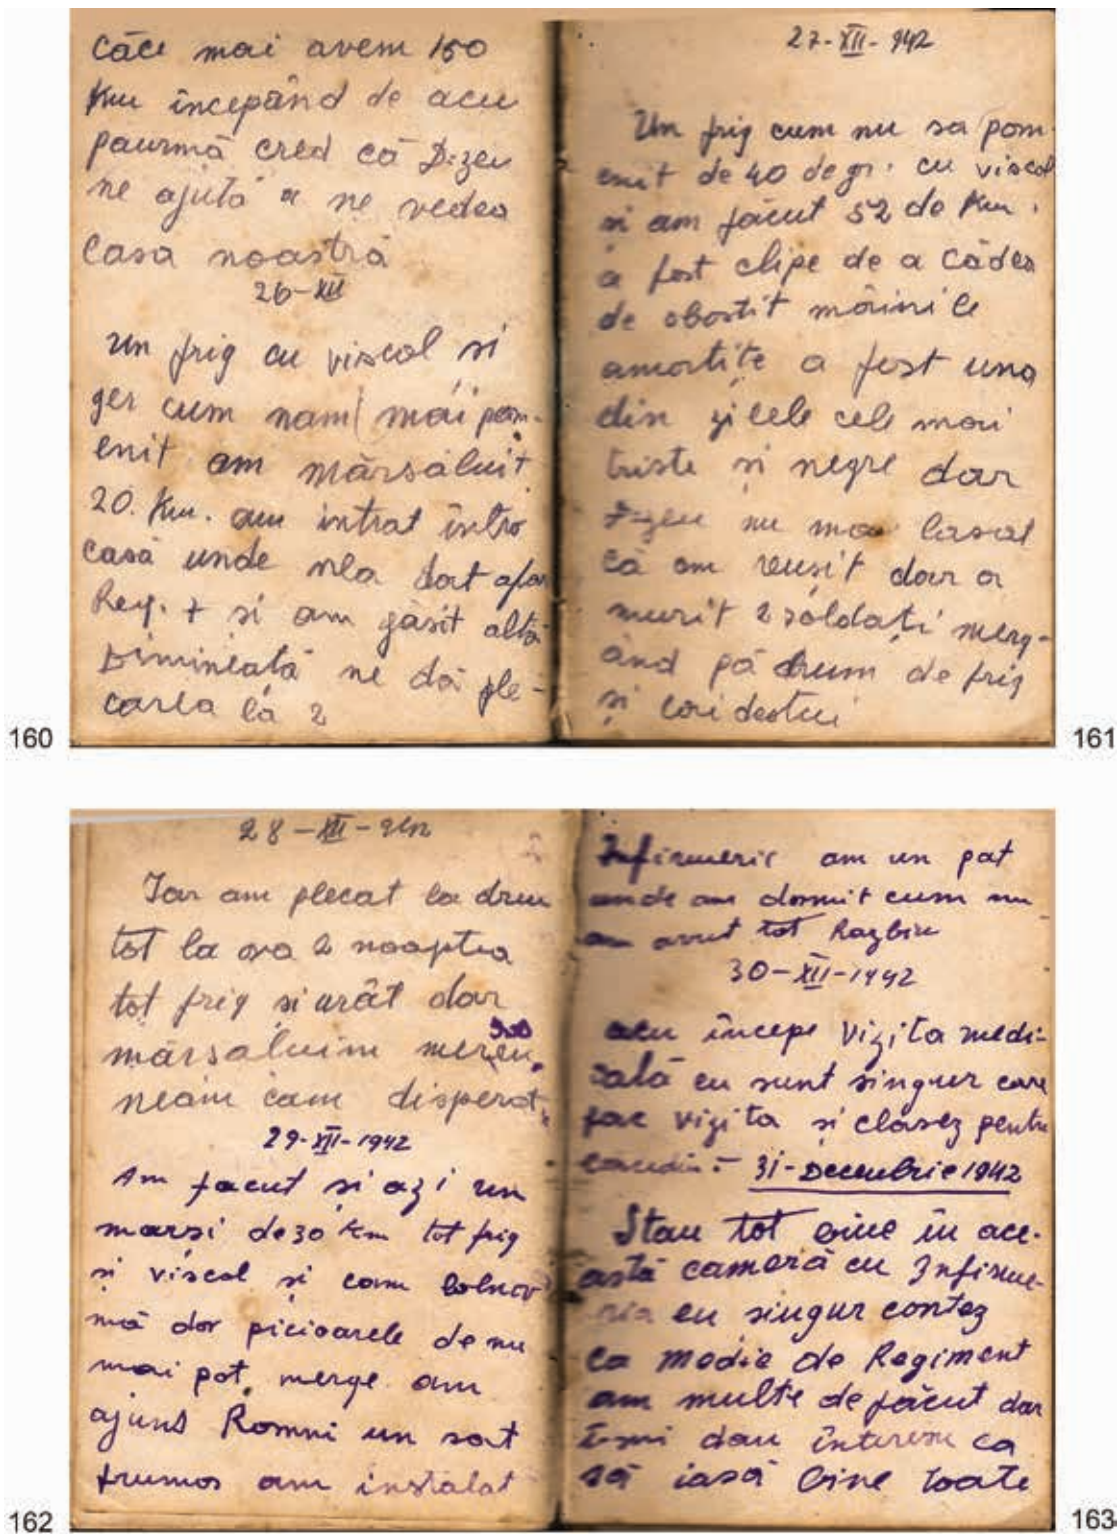 Căci mai avem 150
Km începănd de acu
paurmă cred că D-zeu
ne ajută a ne vedea
Casa noastră
26-XII
Un frig cu viscol si
ger cum nam mai pom-
enit am mărsăluit
20. Km. am intrat întro
casă unde nla dat afar
Reg. 7 si am găsit altă
Dimineată ne dă ple-
carea la 2
160
27-XII-942
Un frig cum nu sa pom-
enit de 40 de gr. cu viscol
și am făcut 52 de Km.
a fost clipe de a cădea
de obostit măinile
amortițe a fost una
din zilele cele mai
triste și negre dar
D-zeu nu ma lasat
că am reușit dar a
murit 2 soldați merg-
ănd pă drum de frig
și
161
28-XII-942
Iar am plecat la drum
tot la ora 2 noaptea
tot frig si urăt dar
mărsăluim mereu
neam cam disperat.
29-XII-1942
Am facut și azi un
marsi de 30 km tot frig
si viscol și cam bolnav
mă dor picioarele de nu
mai pot merge am
ajuns Romni un sat
frumos am instalat
162
Infirmerie am un pat
unde am dormit cum nu
am avut tot Razbiu
30-XII-1942
acu începe vizita medi-
cală eu sunt singur care
fac vizita și clasez pentru
31-Decembrie 1942
Stau tot bine în ace-
astă cameră cu Infirme-
ria eu singur contez
ca medic de Regiment
am multe de făcut dar
îmi dau interesu ca
să iasă bine toate
163